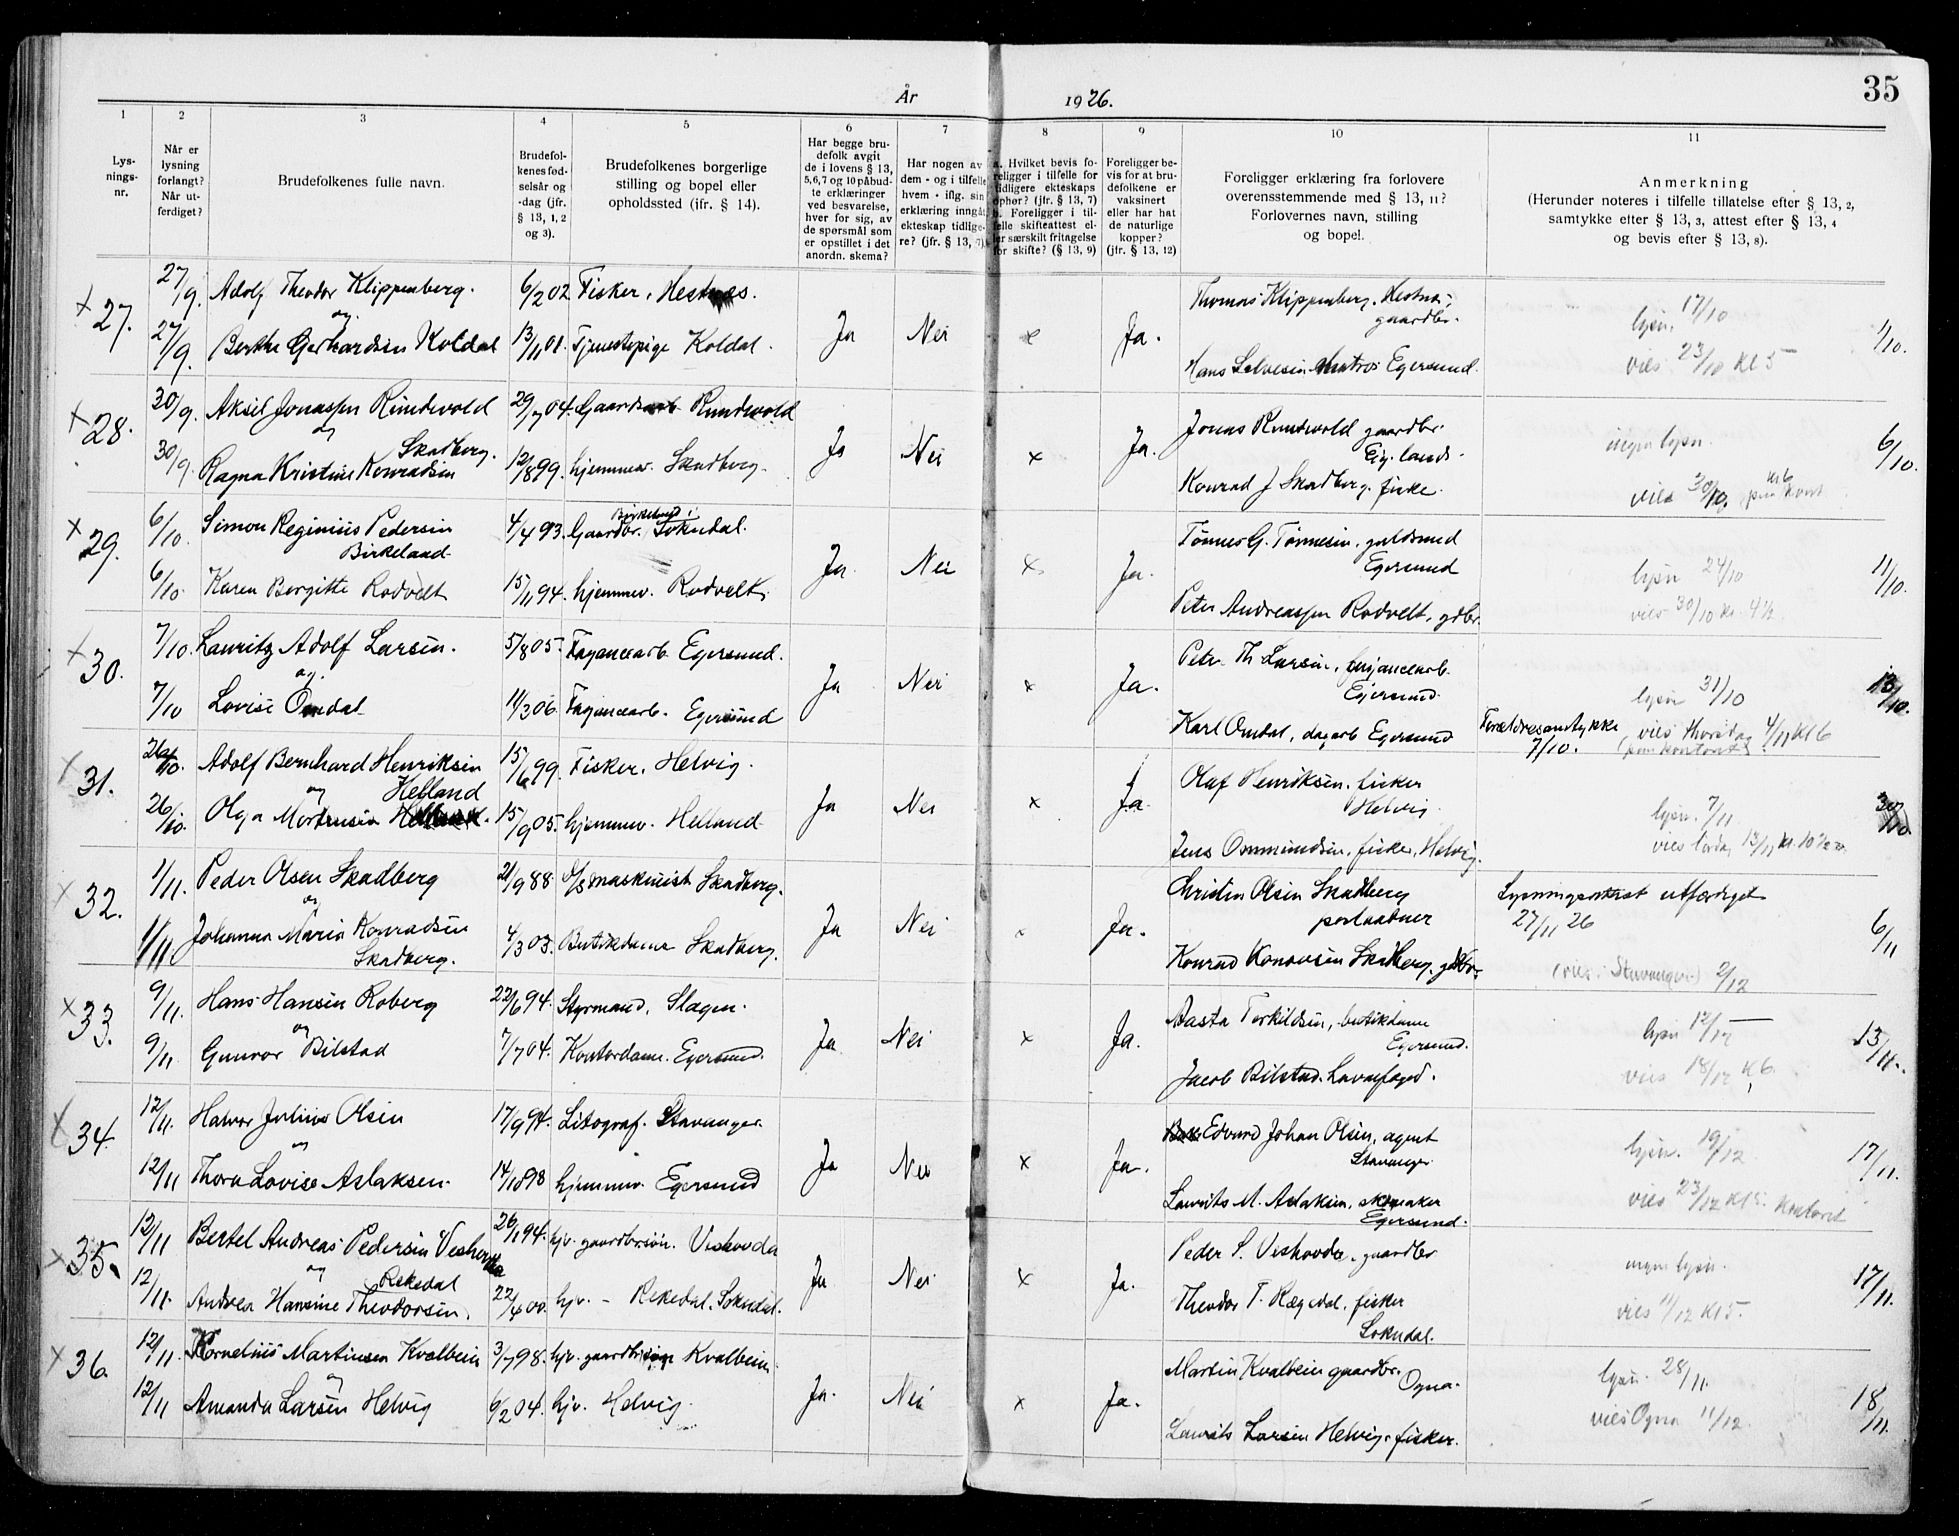 35
År 1926.
1 2 3 4 5 6 7 8 9 10 11
Lys-
nings-
nr.
Når er
lysning
forlangt?
Når ut-
ferdiget?
Brudefolkenes fulle navn.
Brudefol-
kenes fød-
selsår og
-dag (jfr.
§ 13, 1, 2
og 3).
Brudefolkenes borgerlige
stilling og bopel eller
opholdssted (ifr. § 14).
Har begge bru-
defolk avgit
de i lovens § 13,
5,6,7 og 10 påbud-
te erklæringer
ved besvarelse,
hver for sig, av
de spørsmål som
er opstillet i det
anordn. skema?
Har nogen av
dem - og i tilfelle
hvem - iflg. sin
erklæring inngåt
ekteskap tidlige-
re? (jfr. § 13, 7).
a. Hvilket bevis fo-
religger i tilfelle for
tidligere ekteskaps
ophør? (jfr. § 13, 7)
b. Foreligger i til-
felle skifteattest el-
ler særskilt fritagelse
for skifte? (§ 13, 9)
Foreligger be-
vis for at bru-
defolkene er
vaksinert
eller har hat
de naturlige
kopper?
(jfr. § 13, 12)
Foreligger erklæring fra forlovere
overensstemmende med § 13, 11?
Forlovernes navn, stilling
og bopel.
Anmerkning
(Herunder noteres i tilfelle tillatelse efter § 13, 2,
samtykke efter § 13, 3, attest efter § 13, 4
og bevis efter § 13, 8).
x 27. 27/9. Adolf Theodor Klippenberg. 6/2 02 Fisker, Hestnes. Thomas Klippenberg, Hestnes,
og gaardbr.
27/9. Berthe Gerhardsen Koldal 13/11 01. Tjenestepige Koldal. Ja Nei x Ja. lysn. 17/10 1/10.
Hans Salvesen Matros Egersund. vies 23/10 Kl 5
x 28. 30/9. Aksel Jonassen Rundvold 29/7 04. Gaardsarb. Rundvold Jonas Rundvold gaardbr.
og Skadberg. Eg. lands.
30/9. Ragna Kristine Konradsen 12/8 99. hjemmev. Skadberg. Ja Nei x Ja. ingen lysn. 6/10.
Konrad J Skadberg. fisker. vies 30/10. kl 6
x 29. 6/10 Simon Reginius Pedersen 4/4 93. Gaardbr. Birkeland i Sokndal. Tønnes G. Tønnesen, guldsmed
Birkeland Egersund
6/10. Karen Bergitte Rodvelt 15/11 94. hjemmev. Rodvelt. Ja. Nei x Ja. lysn 24/10 11/10.
Peter Andreassen Rodvelt, gdbr. vies 30/10 Kl. 4½.
x 30. 7/10. Lauritz Adolf Larsen. 5/8 05. Fayancearb. Egersund. Petr. Th. Larsen, fayancearb.
og. Egersund.
7/10 Lovise Omdal 11/3 06. Fayancearb. Egersund Ja Nei x Ja. lysn 31/10 13/10.
Karl Omdal, dagarb Egersund Forældresamtykke vies thorsdag 4/11 Kl 6
7/10.
x 31. 26/10. Adolf Bernhard Henriksen 15/6 99. Fisker, Helvig. Olaf Henriksen, fisker
og Helland Helvig
26/10. Olga Mortensen 15/9 05. hjemmev. Helland Ja Nei x Ja. lysn. 7/11 30/10
Jens Ommundsen, fisker, Helvig. vies lørdag 13/11 kl. 10½
x 32. 1/11. Peder Olsen Skadberg 21/9 88. D/S maskinist Skadberg. Christen Olsen Skadberg Lysningsattest utfærdiget
og postaabner 27/11 26
1/11 Johanna Marie Konradsen 4/3 03. Butikdame Skadberg. Ja Nei x Ja. 6/11
Skadberg. Konrad Skadberg, gdbr. (vies i Stavanger) 2/12
x 33. 9/11. Hans Hansen Roberg 22/6 94. Styrmand, Slagen. Aasta Torkildsen, butikdame
og Egersund.
9/11. Gunvor Bilstad 7/7 04. Kontordame. Egersund. Ja. Nei x Ja. lysn 12/12 13/11.
Jacob Bilstad, Havnefoged. vies 18/12 kl 6.
x 34. 12/11. Halvor Julius Olsen 17/9 94. Litograf. Stavanger. Edvard Johan Olsen, agent
og Stavanger.
12/11 Thora Lovise Aslaksen. 14/10 98 hjemmev. Egersund Ja Nei x Ja. lysn. 19/12 17/11.
Laurits M. Aslaksen, skomaker vies 23/12 Kl 5. Kontoret
Egersund.
x 35. 12/11 Bertel Andreas Pedersen Veshovda 26/1 94. hjv. gaardbrsøn. Veshovda Peder S. Veshovde, gaardbr
og Rekedal
12/11. Andrea Hansine Theodorsen. 22/4 00. hjv. – Rekedal, Sokndal. Ja Nei x Ja. ingen lysn. 17/11.
Theodor T. Rægedal, fisker vies 11/12 Kl 5.
Sokndal.
x 36. 12/11. Kornelius Martinsen Kvalbein 3/7 98. hjv. gaardbrsøn Kvalbein. Martin Kvalbein gaardbr. lysn. 28/11.
og Ogna.
12/11 Amanda Larsen Helvig 6/2 04. hjv. Helvig. Ja. Nei x Ja. vies Ogna 11/12. 18/11.
Laurits Larsen Helvig. fisker.